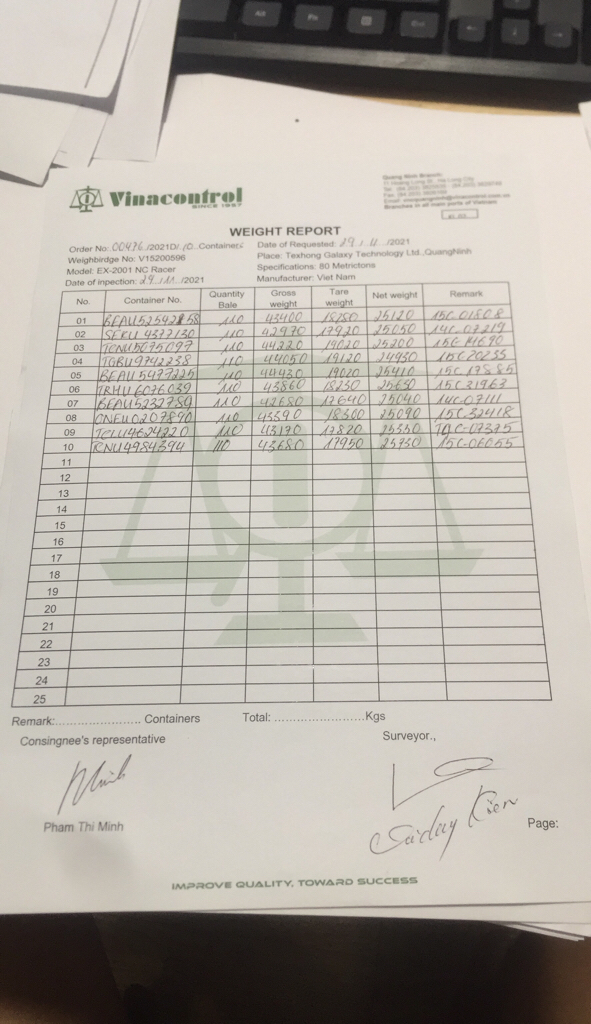 Alt
Fn
Ctrl
Quang Ninh Branch:
Vinacontrol
SINCE 1957
WEIGHT REPORT
Order No: 00476 /2021D/ 10 Containers Date of Requested: 29 / 11 /2021
Weighbirdge No: V15200596 Place: Texhong Galaxy Technology Ltd.,QuangNinh
Model: EX-2001 NC Racer Specifications: 80 Metrictons
Date of inpection: 29 / 11 /2021 Manufacturer: Viet Nam
No. Container No. Quantity Bale Gross weight Tare weight Net weight Remark
01 110 43400 25120
02 SEKU 4377130 110 42970 17920 25050
03 TCNU5075097 110 44220 19020 25200
04 TGBU9742238 110 44050 19120 24930 15C 20235
05 BEAU 5497225 110 44430 19020 25410 15C 17885
06 TRHU 6076039 110 43860 25630 15C 31963
07 BEAU5232789 110 42680 17640 25040 14C-07111
08 ONEU0207890 110 43390 18300 25090 15C-32418
09 110 43170 17820 25350
10 110 43680 17950 25730 15C-06055
11
12
13
14
15
16
17
18
19
20
21
22
23
24
25
Remark:....................... Containers Total: ........................Kgs
Consingnee's representative Surveyor.,
Minh
Pham Thi Minh
Kien
Page:
IMPROVE QUALITY, TOWARD SUCCESS